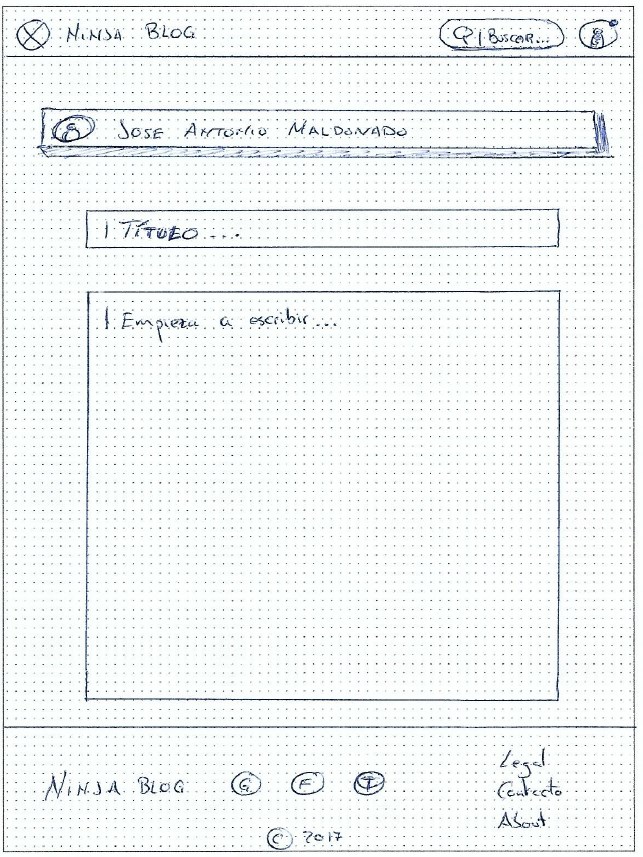 NINJA BLOG
BUSCAR...
JOSE ANTONIO MALDONADO
TÍTULO....
Empieza a escribir...
NINJA BLOG G F T
Legal
Contacto
About
© 2017